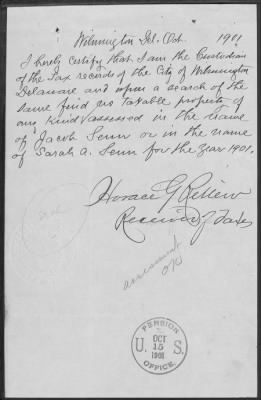 Wilmington Del. Oct. 1901
I hereby certify that I am the Custodian
of the Tax records of the City of Wilmington
Delaware and upon a search of the
same find no taxable property of
any kind assessed in the name
of Jacob Senn or in the name
of Sarah A. Senn for the year 1901.
Horace G. Rettew
Receiver of Taxes
assessment
OK
PENSION
OCT
15
1901
U. S.
OFFICE.